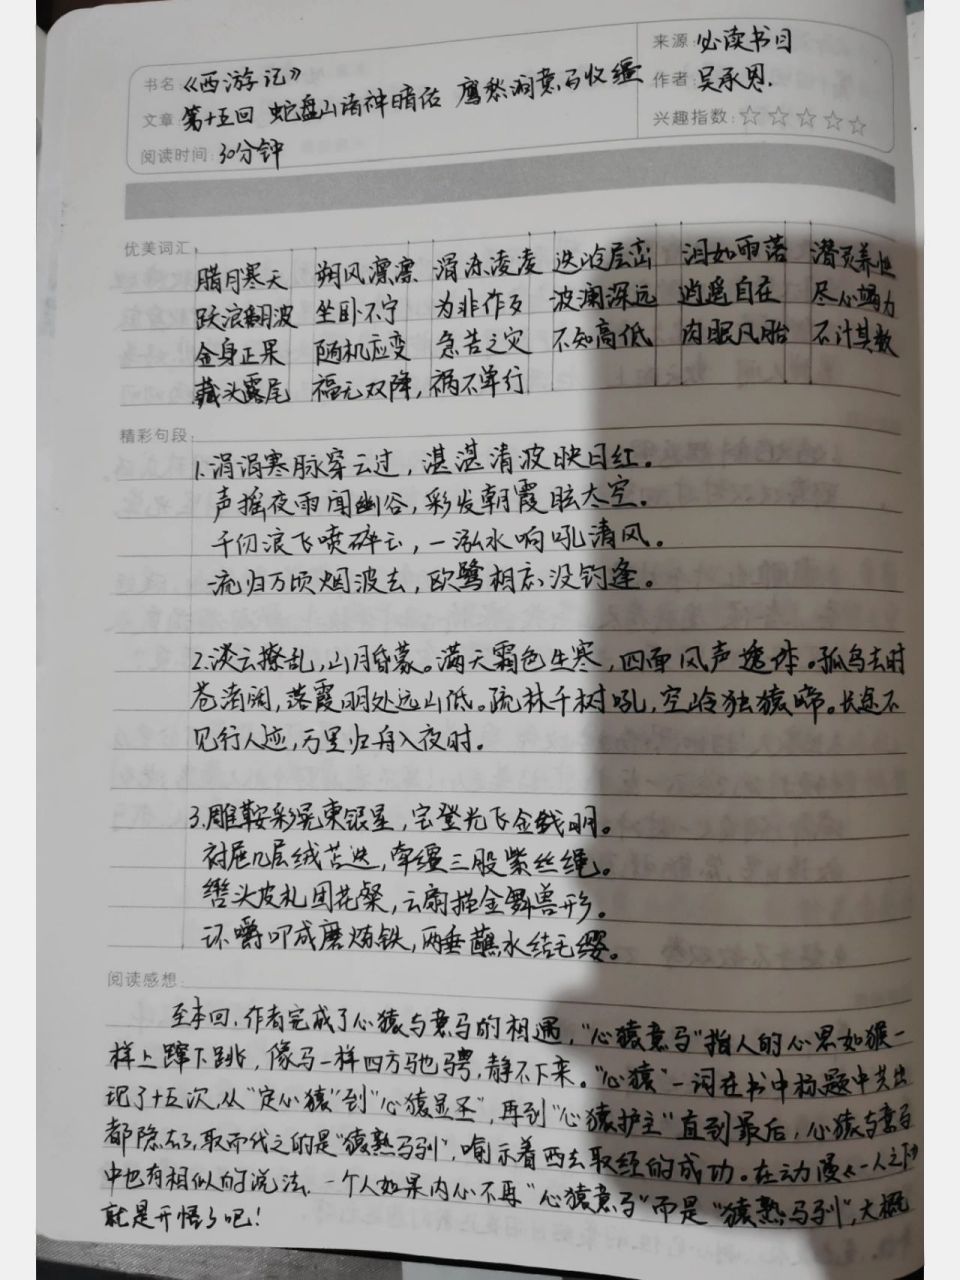 书名:《西游记》
来源:必读书目
作者:吴承恩.
文章:第十五回 蛇盘山诸神暗佑 鹰愁涧意马收缰
兴趣指数:☆☆☆☆☆
阅读时间:30分钟
优美词汇:
腊月寒天 朔风凛凛 滑冻凌凌 迭岭层峦 泪如雨落 潜灵养性
跃浪翻波 坐卧不宁 为非作歹 波澜深远 逍遥自在 尽心竭力
金身正果 随机应变 急苦之灾 不知高低 肉眼凡胎 不计其数
藏头露尾 福无双降,祸不单行
精彩句段:
1.涓涓寒脉穿云过,湛湛清波映日红。
声摇夜雨闻幽谷,彩发朝霞眩太空。
千仞浪飞喷碎玉,一泓水响吼清风。
流归万顷烟波去,欧鹭相忘没钓逢。
2.淡云撩乱,山月昏蒙。满天霜色生寒,四面风声透体。孤鸟去时
苍渚阔,落霞明处远山低。疏林千树吼,空岭独猿啼。长途不
见行人迹,万里归舟入夜时。
3.雕鞍彩晃柬银星,宝登光飞金线明。
衬屉几层绒苫迭,牵缰三股紫丝绳。
辔头皮札团花粲,云扇描金舞兽形。
环嚼叩成磨炼铁,两垂蘸水结毛缨。
阅读感想:
至本回,作者完成了心猿与意马的相遇,“心猿意马”指人的心思如猴一
样上蹿下跳,像马一样四方驰骋,静不下来。“心猿”一词在书中标题中共出
现了十五次,从“定心猿”到“心猿显圣”,再到“心猿护主”直到最后,心猿与意马
都隐去了,取而代之的是“猿熟马驯”,喻示着西去取经的成功。在动漫《一人之下》
中也有相似的说法.一个人如果内心不再“心猿意马”而是“猿熟马驯”,大概
就是开悟了吧!